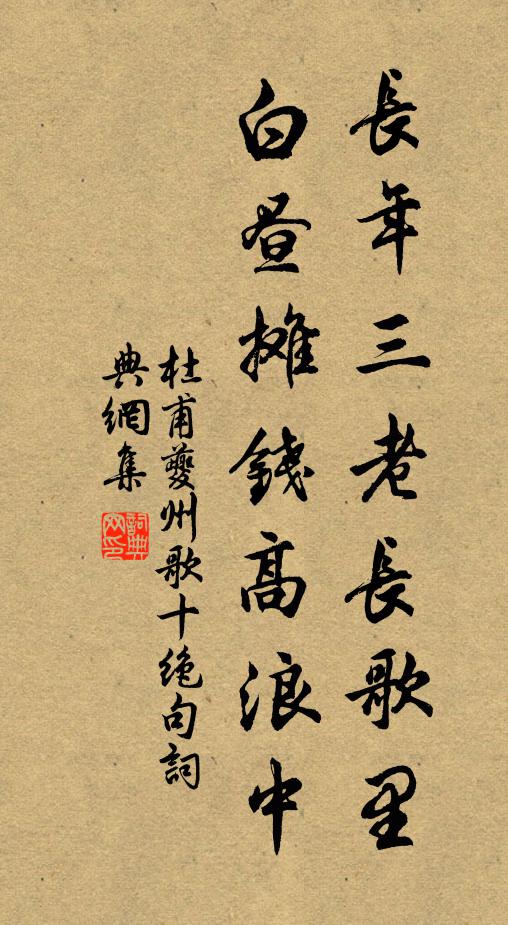 長年三老長歌里
白晝攤錢高浪中
杜甫夔州歌十絕句詞
典網集
詞典
网印